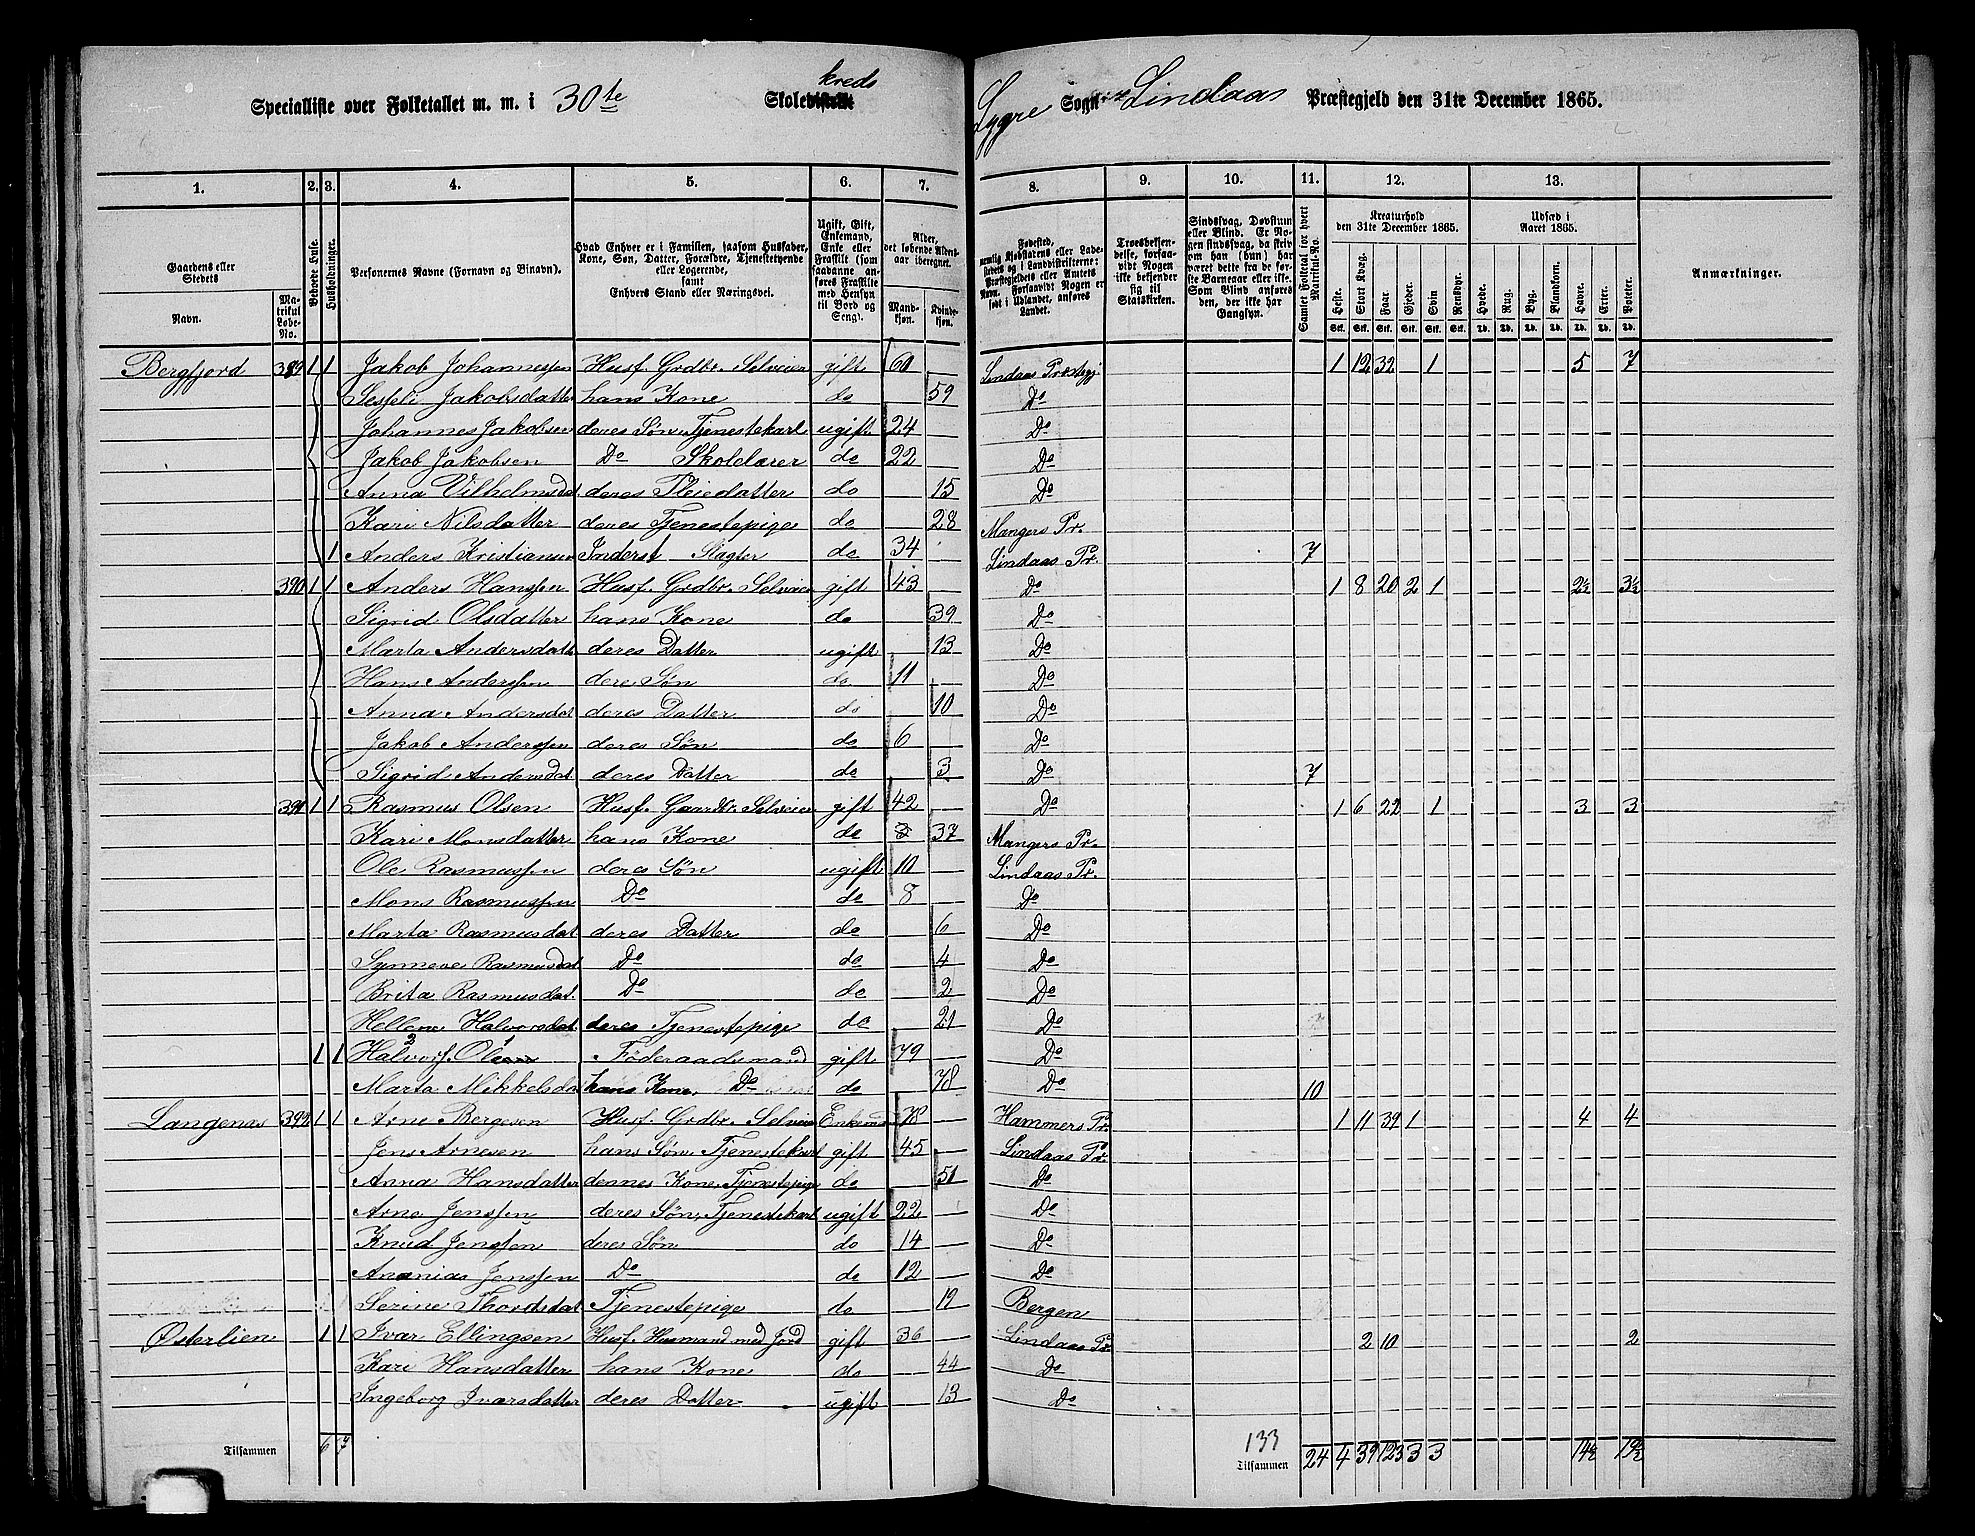 Specialliste over Folketallet m. m. i 30te Skolekreds Lygre Sogn i Lindaas Præstegjeld den 31te December 1865.
1. 2. 3. 4. 5. 6. 7. 8. 9. 10. 11. 12. 13.
Gaardens eller Stedets Navn. Matrikul Løbe-No. Beboede Huse. Husholdninger. Personernes Navne (Fornavn og Binavn).
Hvad Enhver er i Familien, saasom Husfader, Kone, Søn, Datter, Forældre, Tjenestetyende eller Logerende, samt Enhvers Stand eller Næringsvei.
Ugift, Gift, Enkemand, Enke eller Fraskilt (som saadanne anføres Fraskilte med Hensyn til Bord og Seng).
Alder, det løbende Alders-aar iberegnet. Mandkjøn. Kvindekjøn.
Fødested, nemlig Kjøbstadens eller Ladestedets og i Landdistrikterne: Præstegjeldets eller Amtets Navn. Forsaavidt Nogen er født i Udlandet, anføres Landet.
Troesbekjendelse, forsaavidt Nogen ikke bekjender sig til Statskirken.
Sindssvag, Døvstum eller Blind. Er Nogen sindssvag, da skrives om han (hun) har været dette fra de første Barneaar eller ikke. Som Blind anføres den, der ikke har Gangsyn.
Samlet Folketal for hvert Matrikul-No.
Kreaturhold den 31te December 1865. Heste. Stort Kvæg. Faar. Gjeder. Svin Rensdyr.
Udsæd i Aaret 1865. Hvede. Rug. Byg. Blandkorn. Havre. Erter. Poteter.
Anmærkninger.
Bergfjord 389 1 1 Jakob Johannessen Husf. Grdbr. Selveier gift 60 Lindaas Præstegj 1 12 32 1 5 7
Sesseli Jakobsdatter hans Kone do 59 Do
Johannes Jakobsen deres Søn, Tjenestekarl ugift 24 Do
Jakob Jakobsen Do Skolelærer do 22 Do
Anna Vilhelmsdat deres Pleiedatter do 15 Do
Kari Nilsdatter deres Tjenestepige do 28 Mangers Pr.
1 Anders Kristiansen Inderst Slagter do 34 Lindaas Pr. 7
390 1 1 Anders Hanssen Husf. Grdbr. Selveier gift 43 Do 1 8 20 2 1 2½ 3½
Sigrid Olsdatter hans Kone do 39 Do
Marta Andersdatt deres Datter ugift 13 Do
Hans Anderssen deres Søn do 11 Do
Anna Andersdat deres Datter do 10 Do
Jakob Anderssen deres Søn do 6 Do
Sigrid Andersdat deres Datter do 3 Do 7
391 1 1 Rasmus Olsen Husf. Gaardbr. Selveier gift 42 Do 1 6 22 1 3 3
Kari Monsdatter hans Kone do 37 Mangers Pr.
Ole Rasmussen deres Søn ugift 10 Lindaas Pr.
Mons Rasmussen Do do 8 Do
Marta Rasmusdat deres Datter do 6 Do
Synneve Rasmusdat Do do 4 Do
Brita Rasmusdat. Do do 2 Do
Hellene Halvorsdat deres Tjenestepige do 21 Do
1 1 Halvors. Ole Føderaadsmand gift 79 Do
Marta Mikkelsdat hans Kone, Do do 78 Do 10
Langenæs 392 1 1 Arne Bergesen Husf. Grdbr. Selveier Enkemd 78 Hammers Pr. 1 11 39 1 4 4
Jens Arnesen hans Søn, Tjenestekarl gift 45 Lindaas Pr.
Anna Hansdatter dennes Kone, Tjenestepige do 51 Do
Arne Jenssen deres Søn, Tjenestekarl ugift 22 Do
Knud Jenssen deres Søn do 14 Do
Ananias Jenssen Do do 12 Do
Serine Thordsdat Tjenestepige do 19 Bergen
Østerlien 1 1 Ivar Ellingsen Husf. Husmand med Jord gift 36 Lindaas Pr 2 10 2
Kari Hansdatter hans Kone do 44 Do
Ingeborg Ivarsdatter deres Datter ugift 13 Do
Tilsammen 6 7 133 Tilsammen 24 4 39 123 3 3 14½ 19½